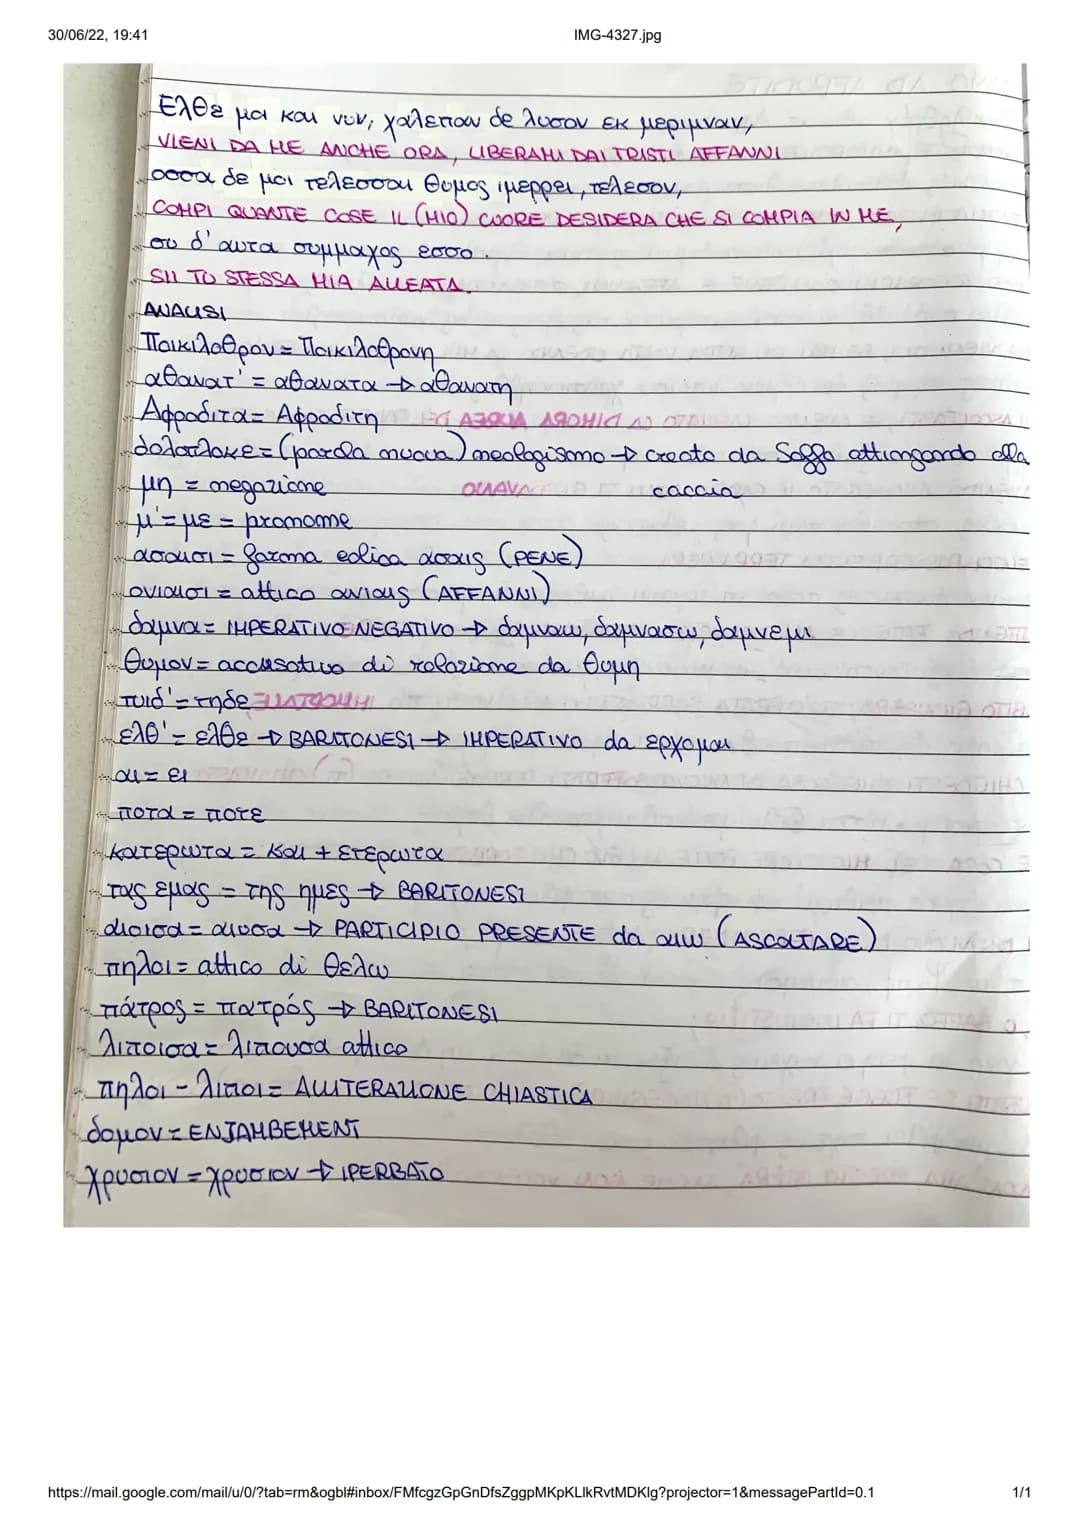 30/06/22, 19:41
IMG-4327.jpg
Ελθε μοι και νυν, χαλεπαν δε λυσον εκ μεριμναν,
VIENI DA ME ANCHE ORA, LIBERAMI DAI TRISTI AFFANNI
οσσα δε μοι τελεσσαι θυμος ιμερρει, τελεσον,
COMPI QUANTE COSE IL (MIO) CUORE DESIDERA CHE SI COMPIA IN ME,
συ δ'αυτα συμμαχος εσσο.
SII TU STESSA MIA ALLEATA.
ANALISI
Ποικιλοθρον = Ποικιλοθρονη
αθανατ' = αθανατα → αθανατη
Αφροδιτα = Αφροδιτη
δολοπλοκε = (parola nuova) neologismo → creato da Saffo attingendo alla
caccia
μη = negazione
μ' = με = pronome
ασαισι = forma eolica ασαις (PENE)
ονιαισι = attico ανιαις (AFFANNI)
δαμνα = IMPERATIVO NEGATIVO → δαμναω, δαμνασω, δαμνεμι
θυμον = accusativo di relazione da θυμη
τυιδ' = τηδε
ελθ' = ελθε → BARITONESI → IMPERATIVO da ερχομαι
αι = ει
ποτα = ποτε
κατερωτα = και + ετερωτα
τας εμας = της ημες → BARITONESI
αιοισα = αιουσα → PARTICIPIO PRESENTE da αιω (ASCOLTARE)
πηλοι = attico di θελω
πάτρος = πατρός → BARITONESI
λιποισα = λιπουσα attico
πηλοι - λιποι = ALLITERAZIONE CHIASTICA
δομον = ENJAMBEMENT
χρυσιον = χρυσιον → IPERBATO
https://mail.google.com/mail/u/0/?tab=rm&ogbl#inbox/FMfcgzGpGnDfsZggpMKpKLlkRvtMDKlg?projector=1&messagePartId=0.1
1/1